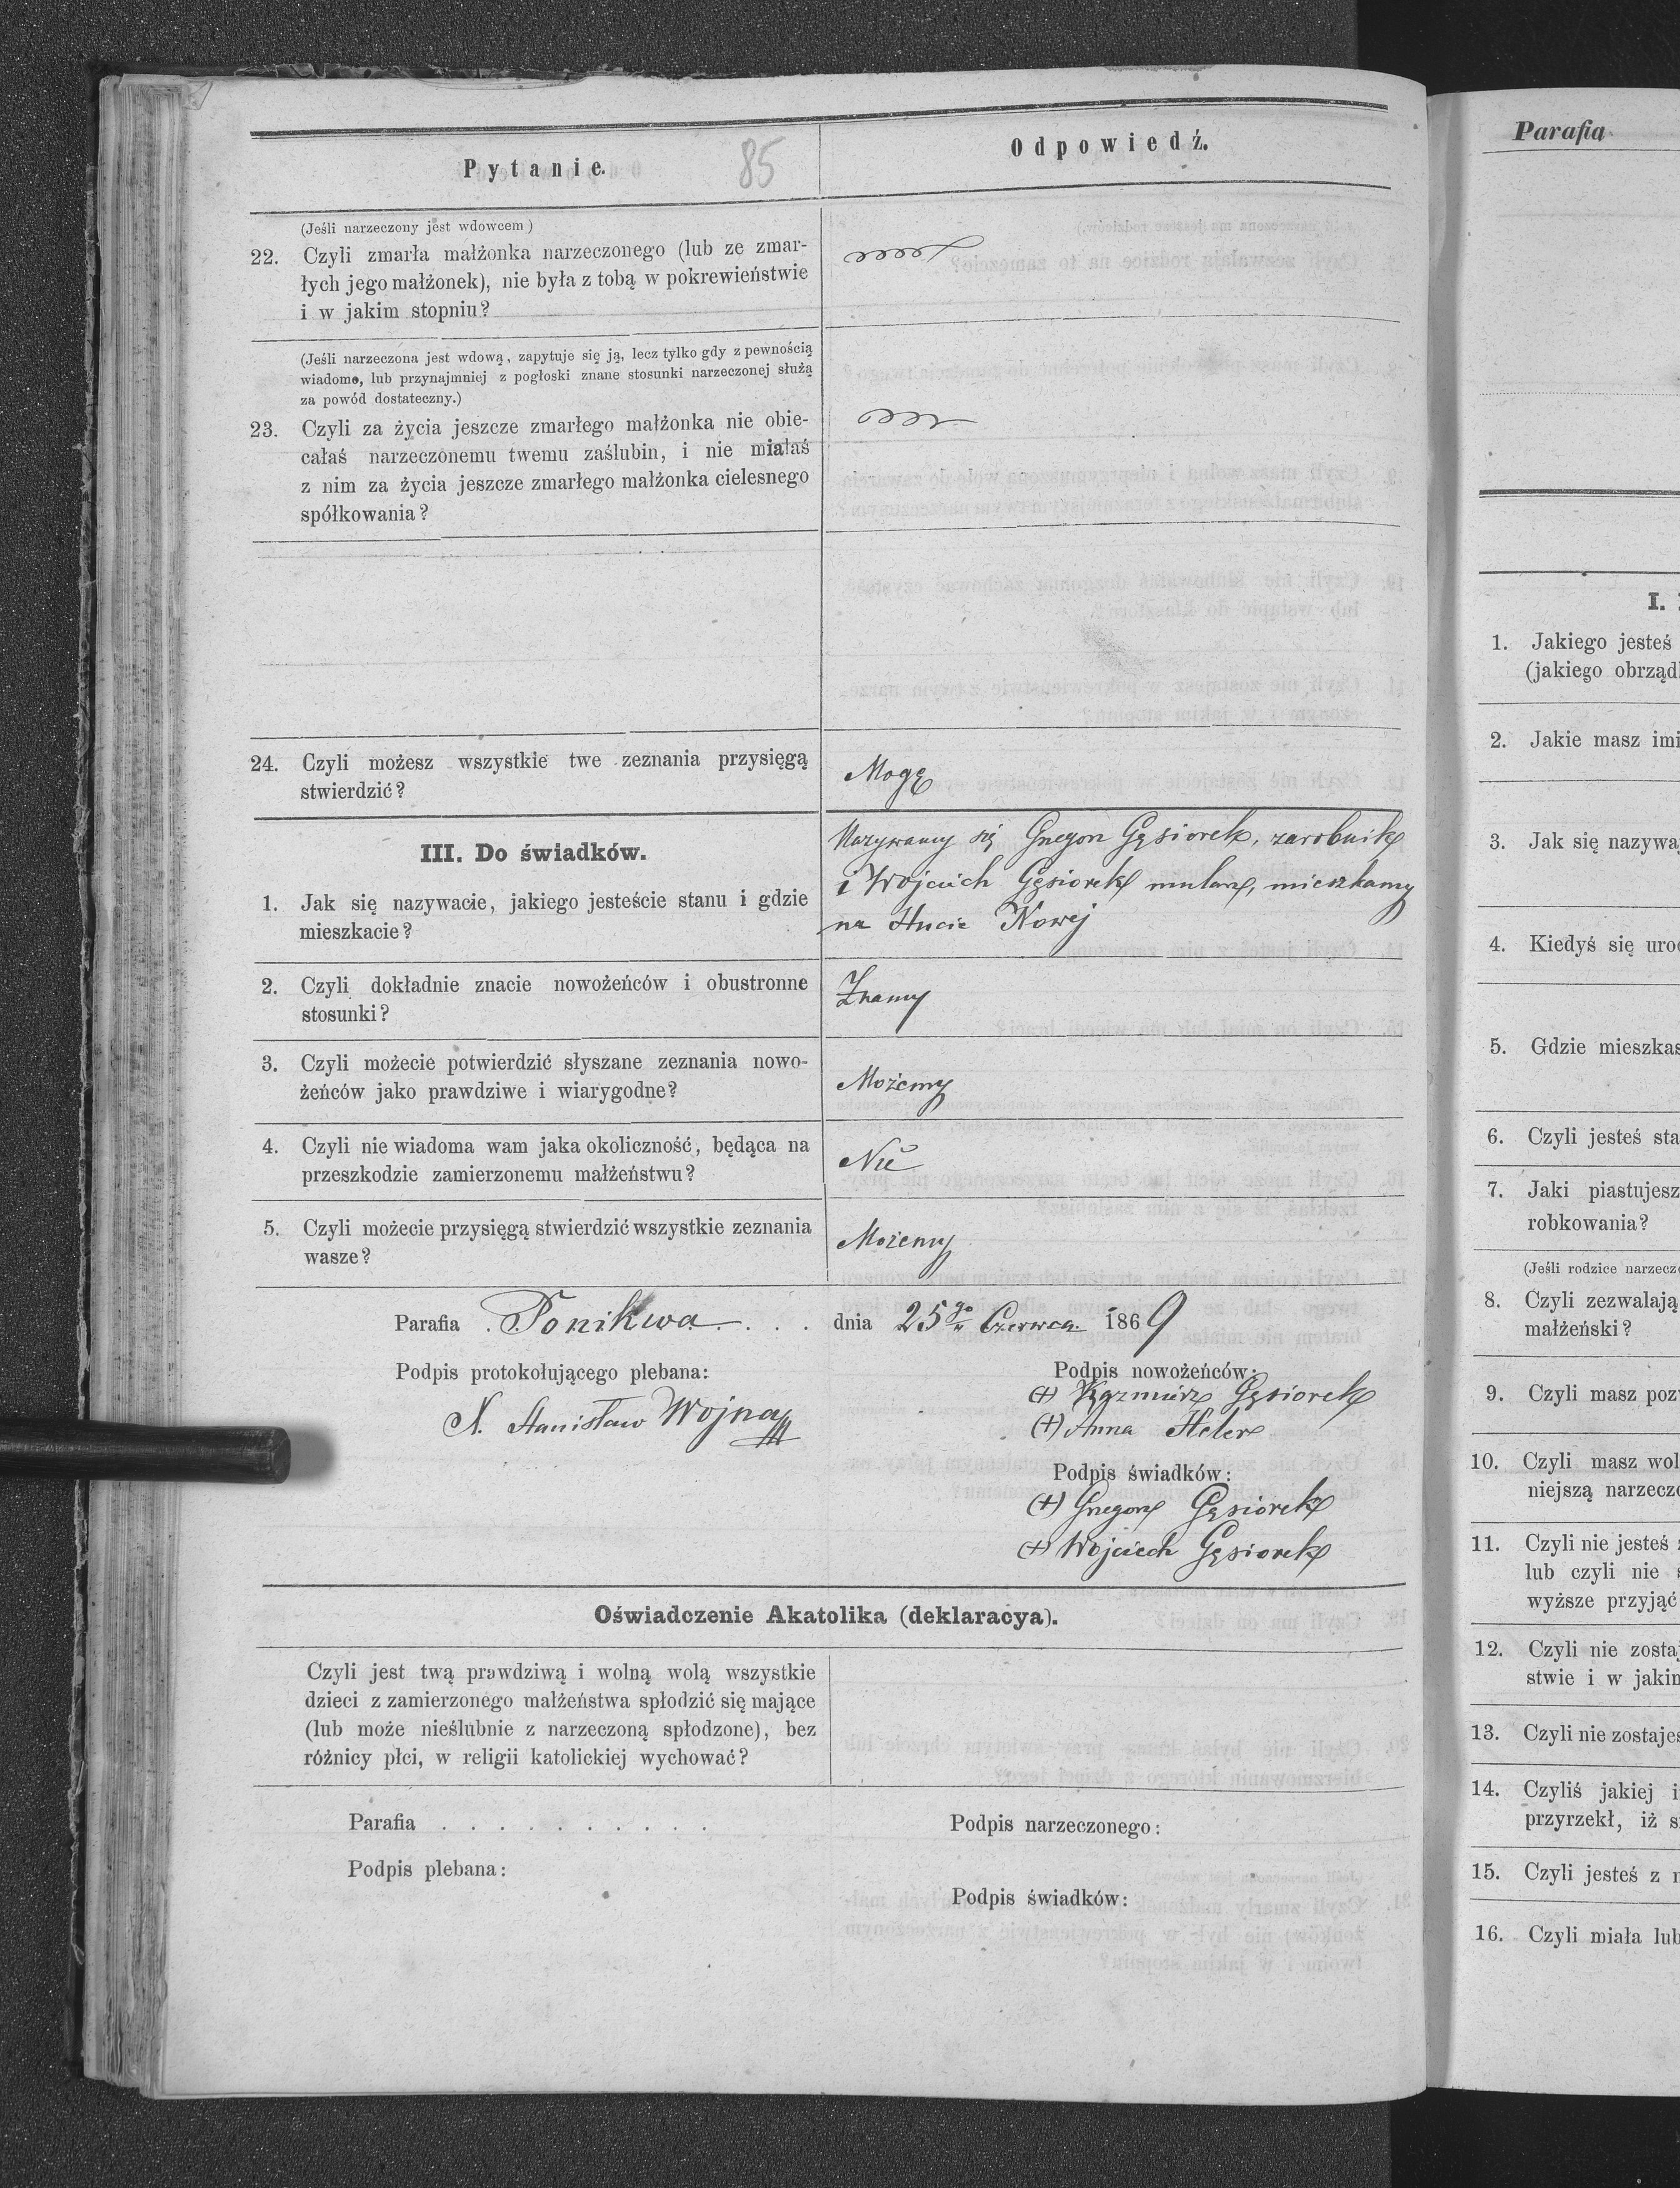 Pytanie.
85
Odpowiedź.
(Jeśli narzeczony jest wdowcem)
22. Czyli zmarła małżonka narzeczonego (lub ze zmar-
łych jego małżonek), nie była z tobą w pokrewieństwie
i w jakim stopniu?
(Jeśli narzeczona jest wdową, zapytuje się ją, lecz tylko gdy z pewnością
wiadome, lub przynajmniej z pogłoski znane stosunki narzeczonej służą
za powód dostateczny.)
23. Czyli za życia jeszcze zmarłego małżonka nie obie-
całaś narzeczonemu twemu zaślubin, i nie miałaś
z nim za życia jeszcze zmarłego małżonka cielesnego
spółkowania?
24. Czyli możesz wszystkie twe zeznania przysięgą
stwierdzić?
Mogę
III. Do świadków.
1. Jak się nazywacie, jakiego jesteście stanu i gdzie
mieszkacie?
Nazywamy się Gregorz Gęsiorek, zarobnik
i Wojciech Gęsiorek mularz, mieszkamy
na Hucie Nowej
2. Czyli dokładnie znacie nowożeńców i obustronne
stosunki?
Znamy
3. Czyli możecie potwierdzić słyszane zeznania nowo-
żeńców jako prawdziwe i wiarygodne?
Możemy
4. Czyli nie wiadoma wam jaka okoliczność, będąca na
przeszkodzie zamierzonemu małżeństwu?
Nie
5. Czyli możecie przysięgą stwierdzić wszystkie zeznania
wasze?
Możemy
Parafia Ponikwa dnia 25go Czerwca 1869
Podpis protokołującego plebana:
X. Stanisław Wojna
Podpis nowożeńców:
(+) Kazmierz Gęsiorek
(+) Anna Heler
Podpis świadków:
(+) Gregorz Gęsiorek
(+) Wojciech Gęsiorek
Oświadczenie Akatolika (deklaracya).
Czyli jest twą prawdziwą i wolną wolą wszystkie
dzieci z zamierzonego małżeństwa spłodzić się mające
(lub może nieślubnie z narzeczoną spłodzone), bez
różnicy płci, w religii katolickiej wychować?
Parafia . . . . . . . . . . .
Podpis plebana:
Podpis narzeczonego:
Podpis świadków:
Parafia
I.
1. Jakiego jesteś
(jakiego obrząd
2. Jakie masz imi
3. Jak się nazywa
4. Kiedyś się uro
5. Gdzie mieszkas
6. Czyli jesteś sta
7. Jaki piastujesz
robkowania?
(Jeśli rodzice narzecz
8. Czyli zezwalają
małżeński?
9. Czyli masz poz
10. Czyli masz wol
niejszą narzecz
11. Czyli nie jesteś
lub czyli nie
wyższe przyjąć
12. Czyli nie zosta
stwie i w jakim
13. Czyli nie zostajes
14. Czyliś jakiej i
przyrzekł, iż s
15. Czyli jesteś z
16. Czyli miała lub